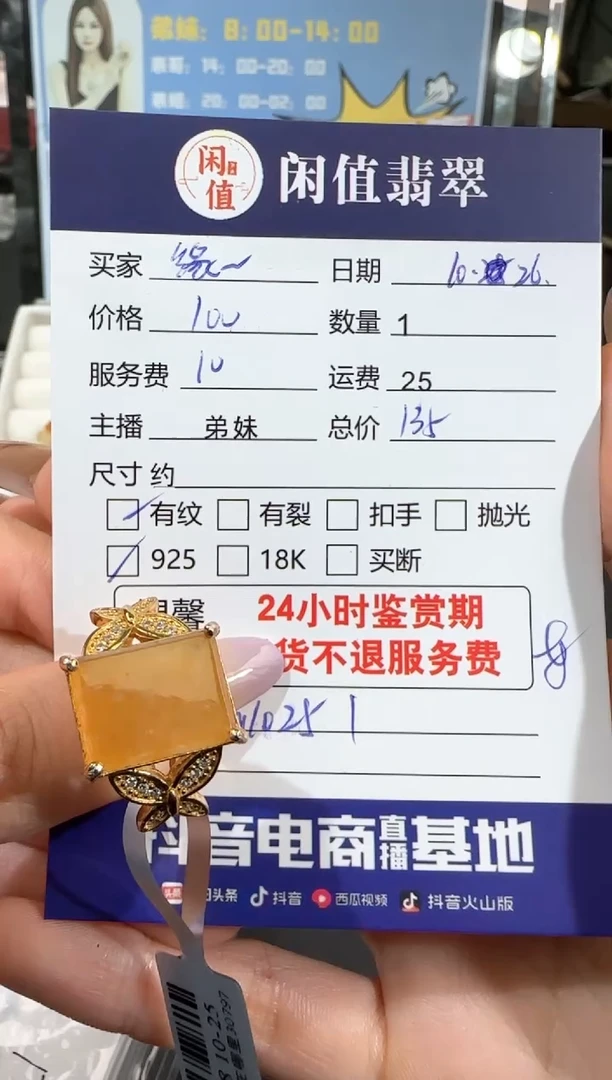 弟妹：8：00-14：00
表哥：14：00-20：00
表姐：20：00-02：00
闲值
闲值翡翠
买家 缘一 日期 10.26.
价格 100 数量 1
服务费 10 运费 25
主播 弟妹 总价 135
尺寸 约
有纹 有裂 扣手 抛光
925 18K 买断
馨 24小时鉴赏期
货不退服务费
1025 1
抖音电商直播基地
头条 抖音 西瓜视频 抖音火山版
8 10-25
30797